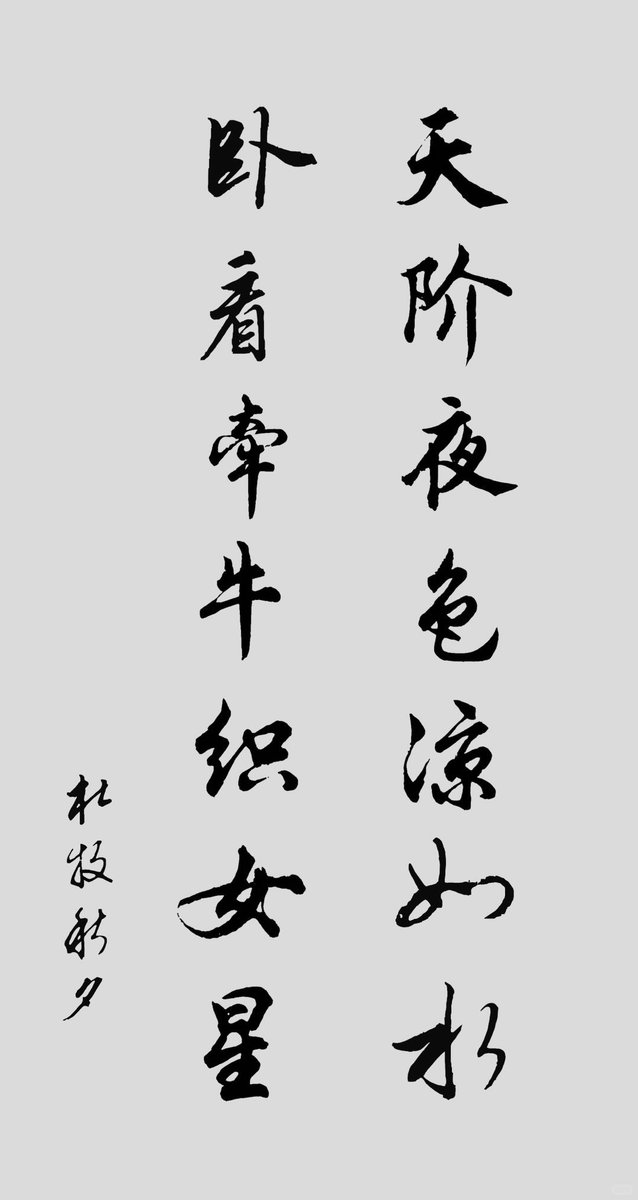 天阶夜色凉如水
卧看牵牛织女星
杜牧秋夕